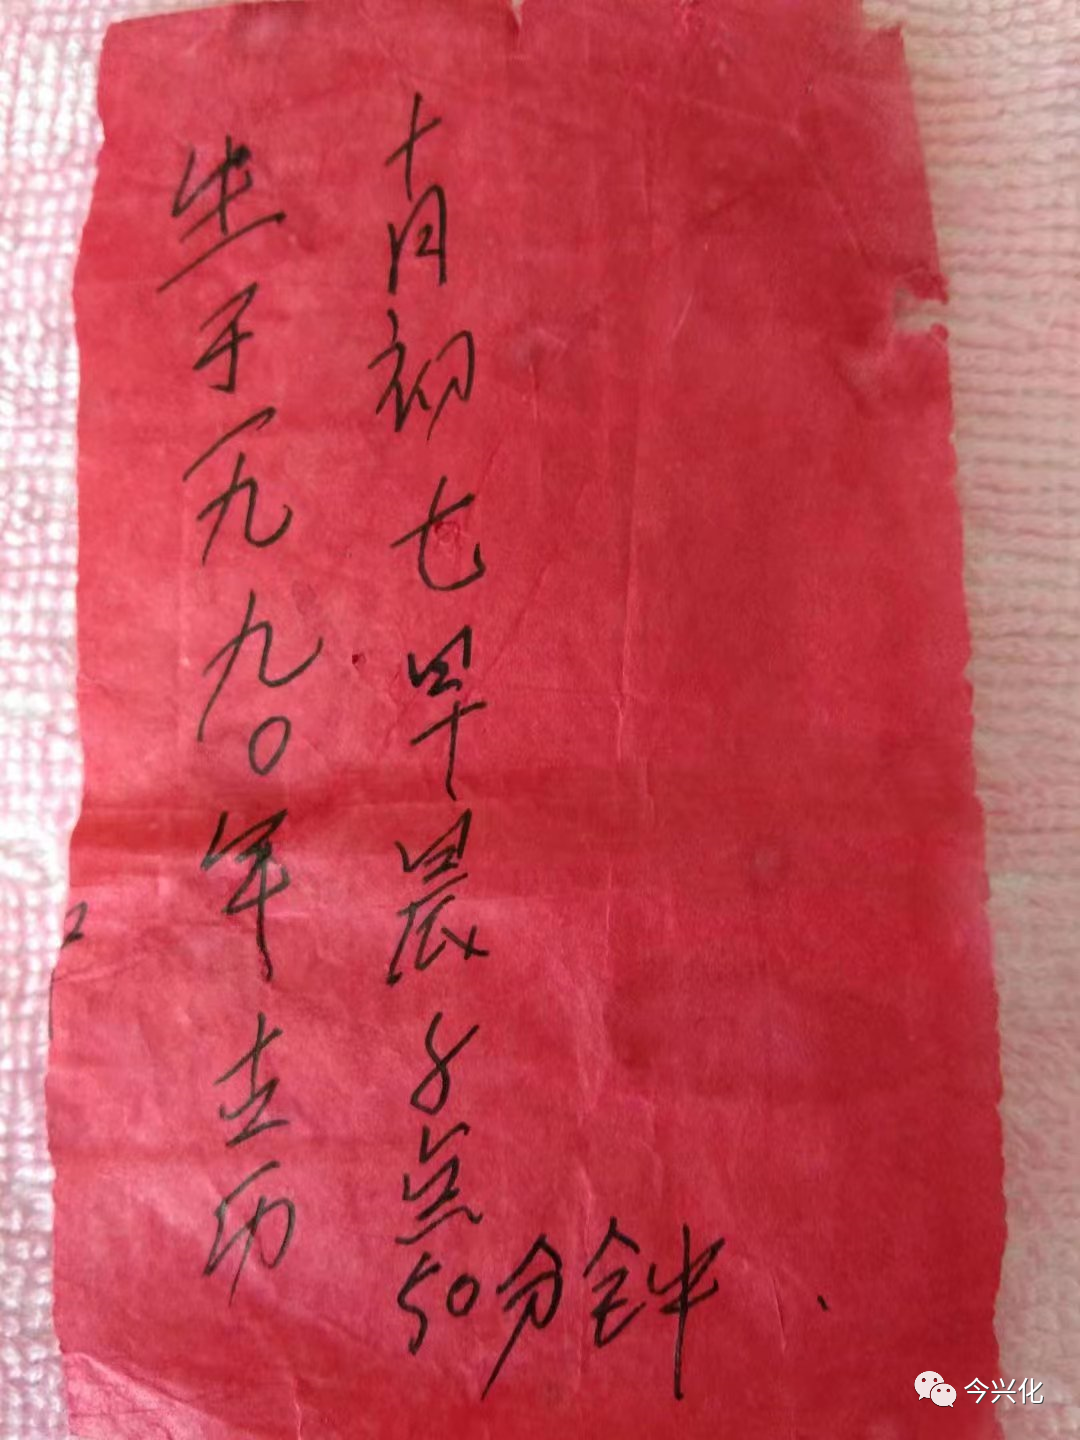 生于一九九0年古历
十月初七早晨8点50分钟.
今兴化